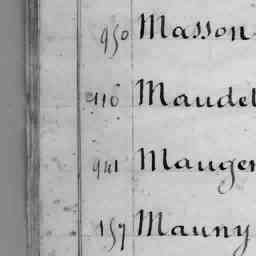 950 Masson
116 Maudet
941 Mauger
157 Mauny